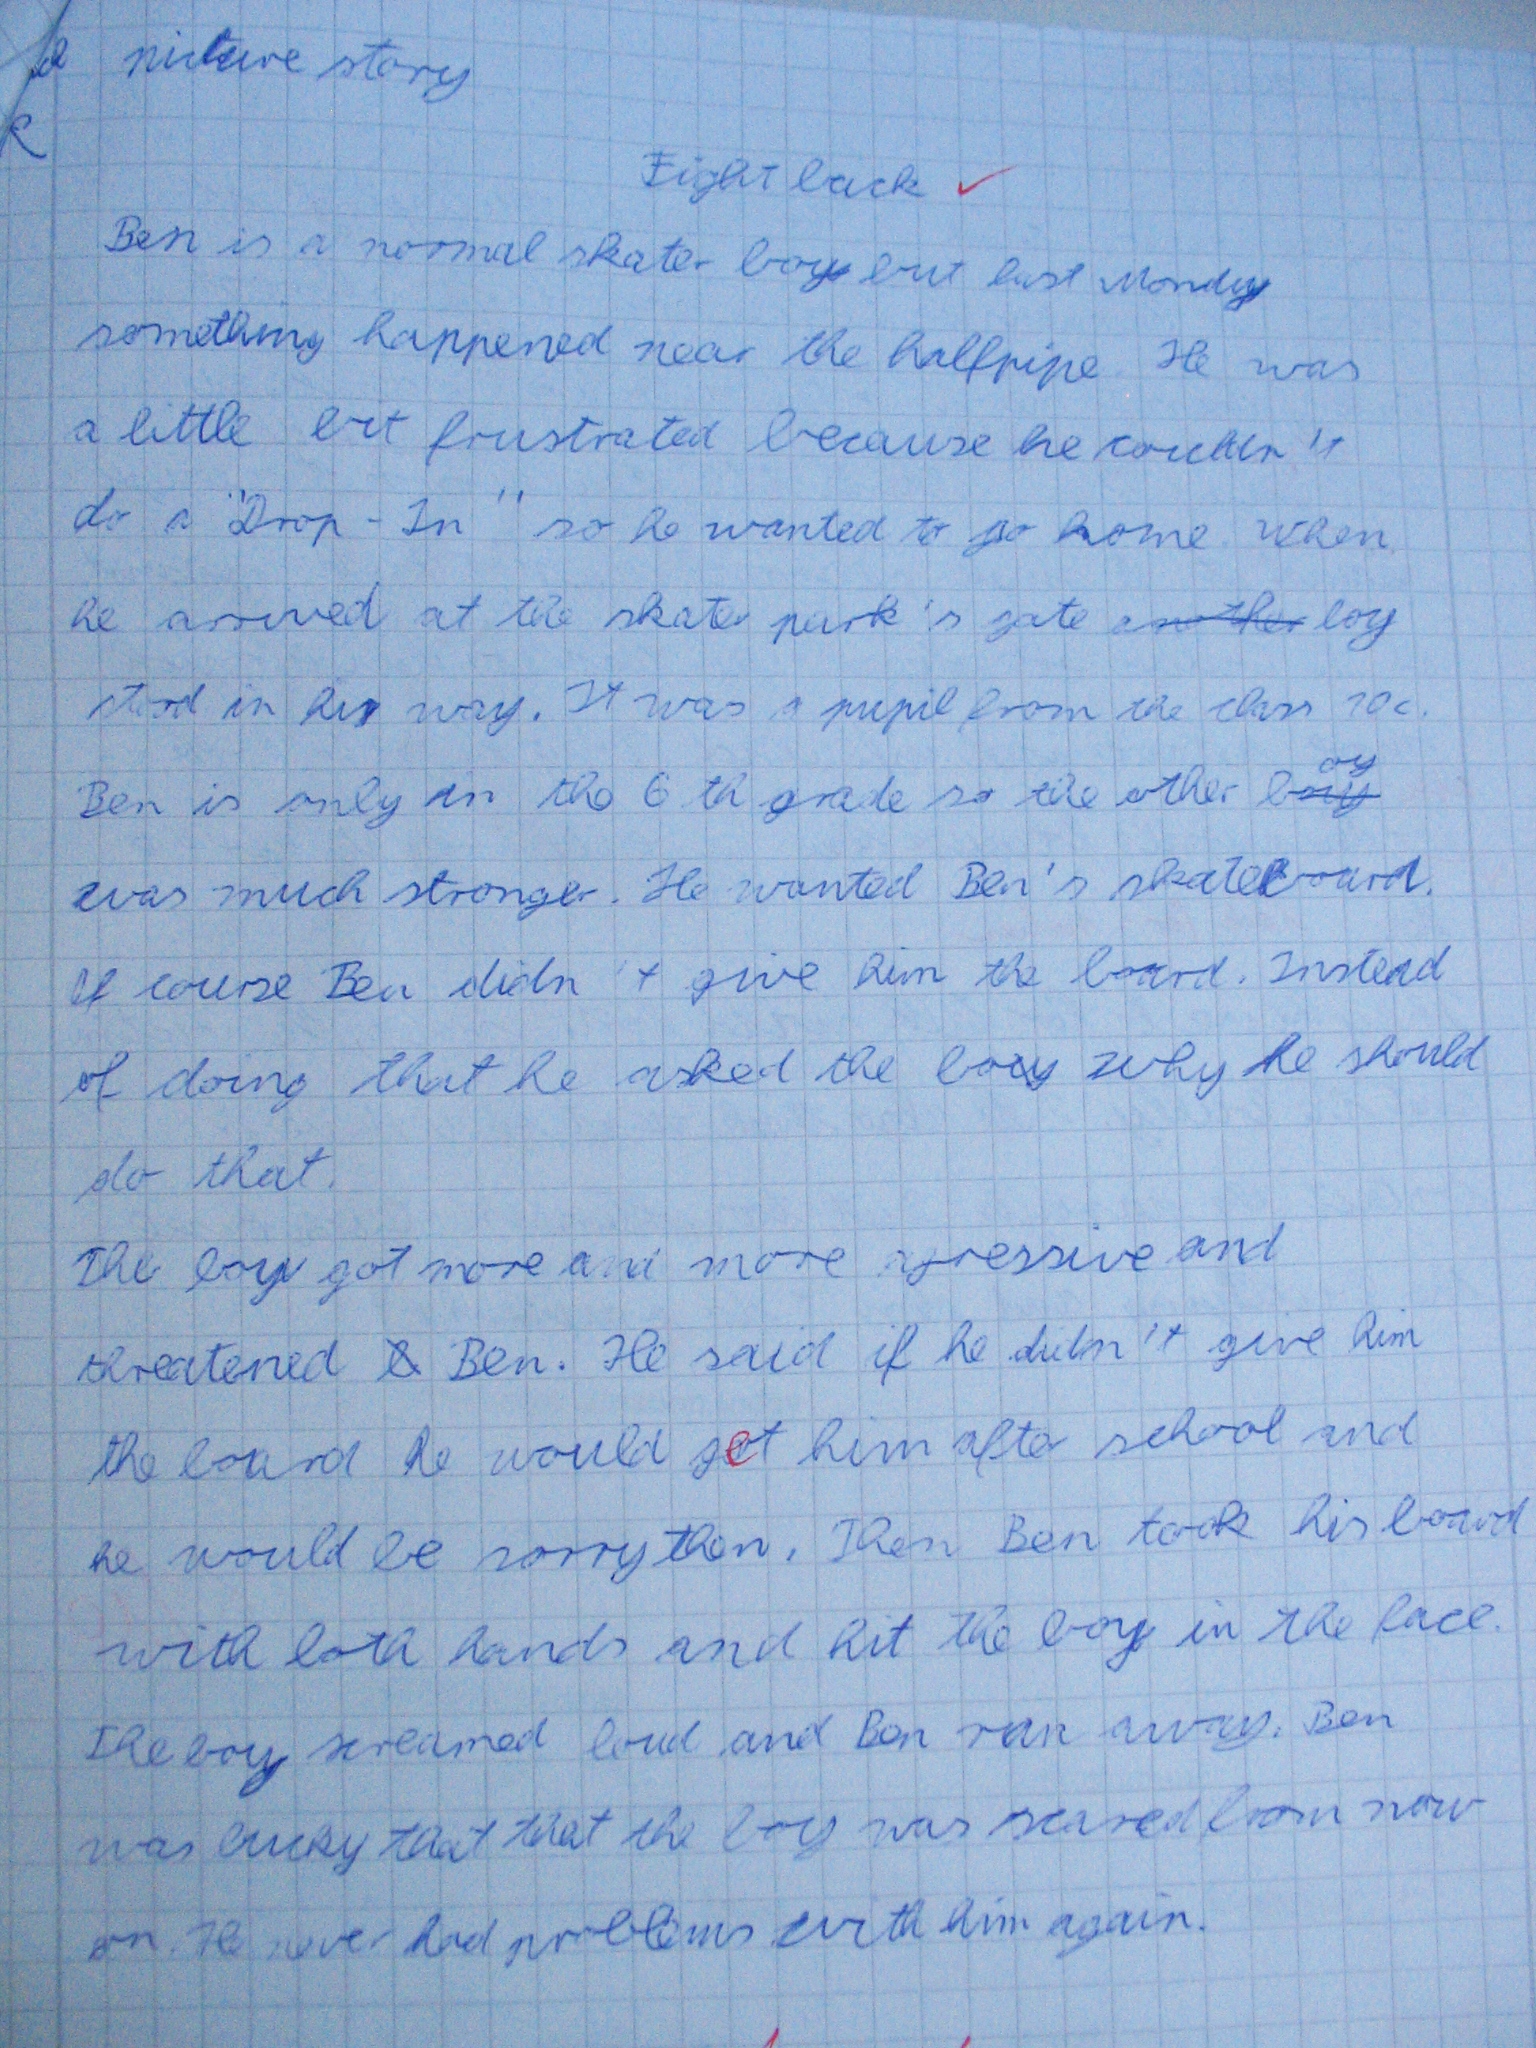 picture story
Fight back
Ben is a normal skater boy but last Monday
something happened near the halfpipe. He was
a little bit frustrated because he couldn't
do a "Drop-In" so he wanted to go home. When
he arrived at the skater park's gate another boy
stood in his way. It was a pupil from the class 10c.
Ben is only in the 6th grade so the other boy
was much stronger. He wanted Ben's skateboard.
Of course Ben didn't give him the board. Instead
of doing that he asked the boy why he should
do that.
The boy got more and more agressive and
threatened Ben. He said if he didn't give him
the board he would get him after school and
he would be sorry then. Then Ben took his board
with both hands and hit the boy in the face.
The boy screamed loud and Ben ran away. Ben
was lucky that that the boy was scared from now
on. He never had problems with him again.